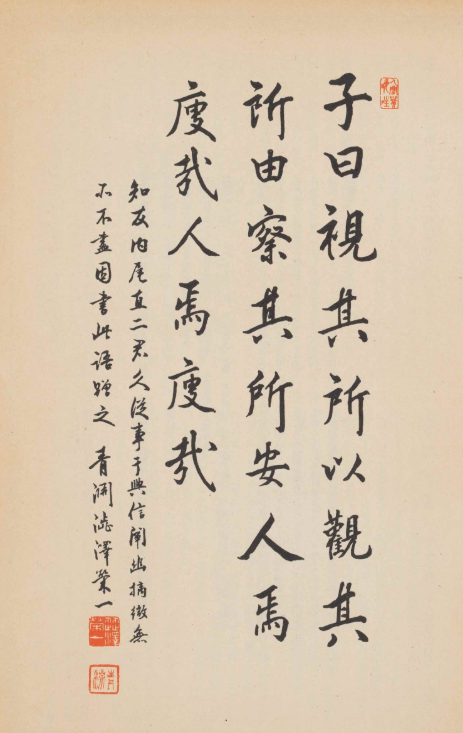 子曰視其所以觀其
所由察其所安人焉
廋哉人焉廋哉
知友内尾直二君久從事于興信闡幽摘微無
不盡因書此語贈之 青淵澁澤榮一